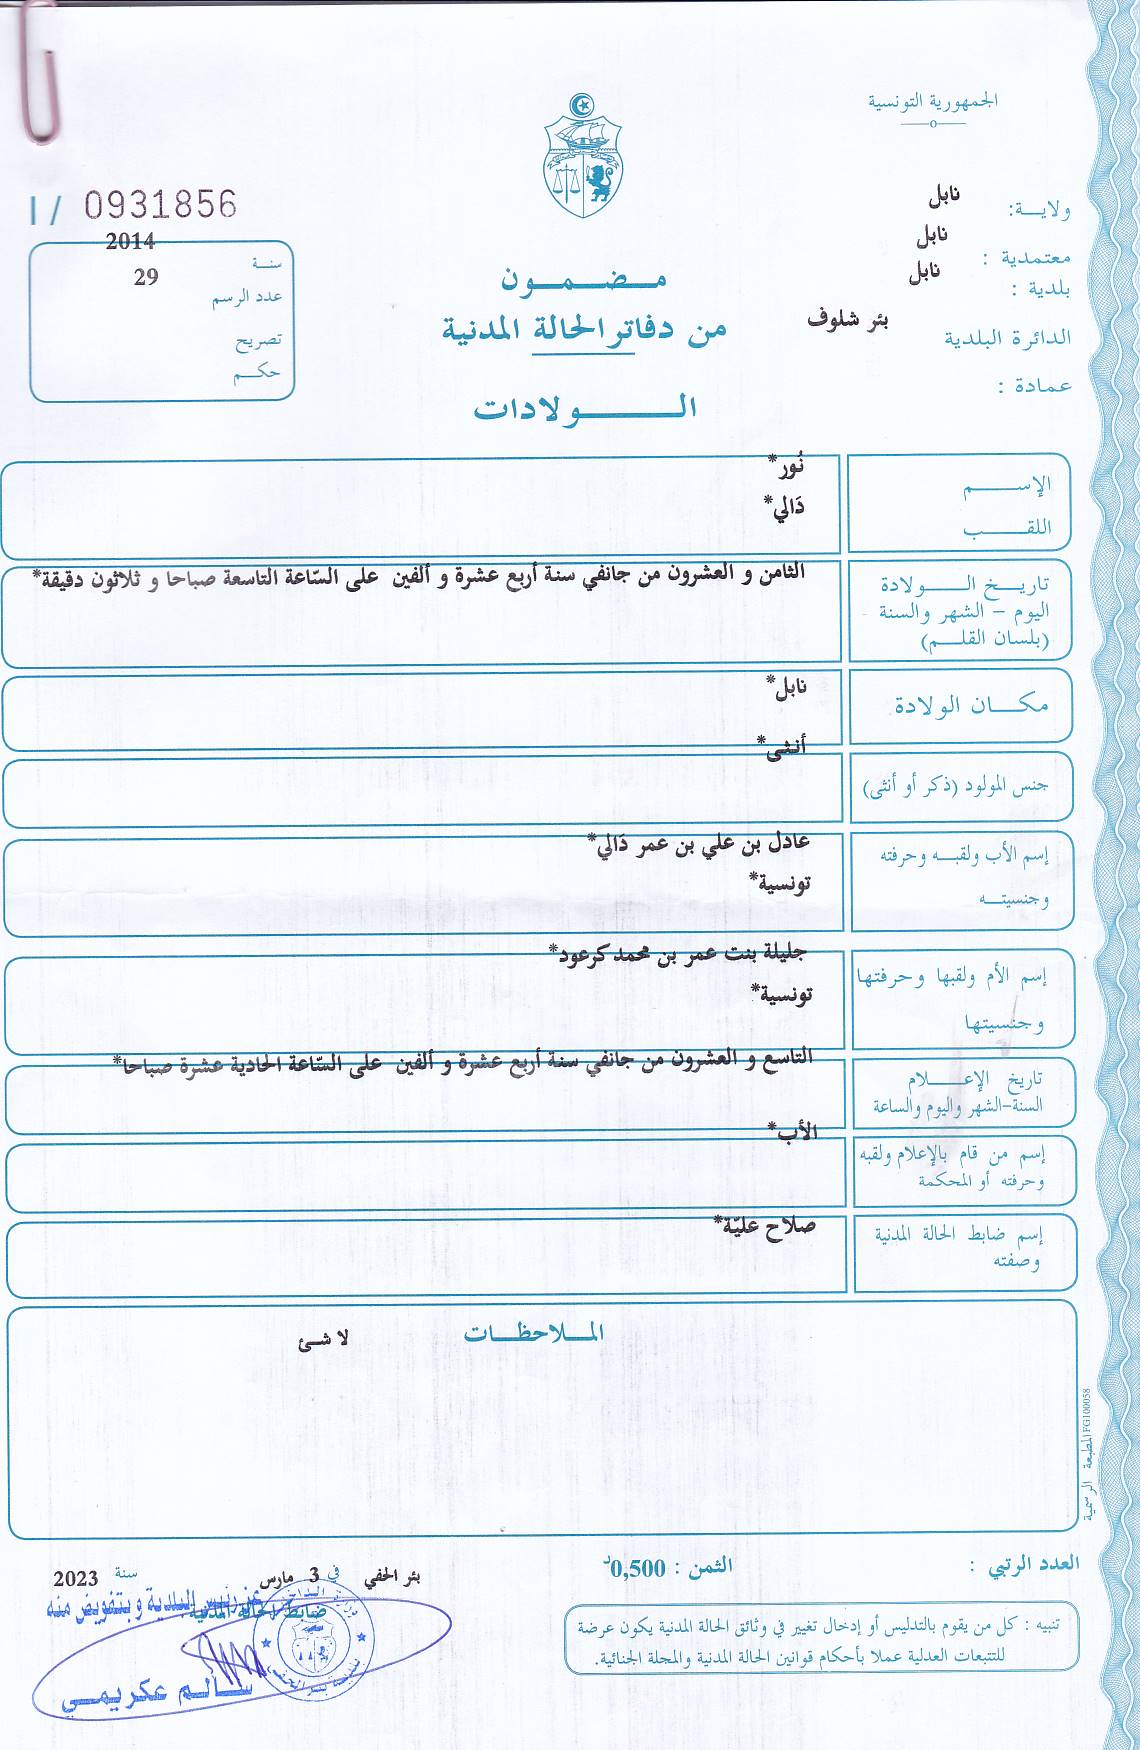 الجمهورية التونسية
I / 0931856
ولايـــة: نابل
معتمدية : نابل
بلدية : نابل
الدائرة البلدية بئر شلوف
عمادة :
سنــة 2014
عدد الرسم 29
تصريح
حكــم
مــضــمــون
من دفاتر الحالة المدنية
الــــــولادات
الإســـــم نُور*
اللقـــب دَالي*
تاريــخ الــــولادة
اليوم - الشهر والسنة
(بلسان القلــم)
الثامن و العشرون من جانفي سنة أربع عشرة و ألفين على السّاعة التاسعة صباحا و ثلاثون دقيقة*
مكـــان الولادة نابل*
جنس المولود (ذكر أو أنثى) أنثى*
إسم الأب ولقبــه وحرفته عادل بن علي بن عمر دَالي*
وجنسيتــه تونسية*
إسم الأم ولقبها وحرفتها جليلة بنت عمر بن محمد كرعود*
وجنسيتها تونسية*
تاريخ الإعــــلام
السنة-الشهر واليوم والساعة
التاسع و العشرون من جانفي سنة أربع عشرة و ألفين على السّاعة الحادية عشرة صباحا*
إسم من قام بالإعلام ولقبه
وحرفته أو المحكمة
الأب*
إسم ضابط الحالة المدنية
وصفته
صلاح عليّة*
المــلاحظــات
لا شئ
المطبعة الرسمية FG100058
العدد الرتبي :
الثمن : 0,500د
تنبيه : كل من يقوم بالتدليس أو إدخال تغيير في وثائق الحالة المدنية يكون عرضة
للتتبعات العدلية عملا بأحكام قوانين الحالة المدنية والمجلة الجنائية.
بئر الحفي في 3 مارس سنة 2023
ضابط الحالة المدنية
عن رئيس البلدية و بتفويض منه
ســالــم عكريمــي